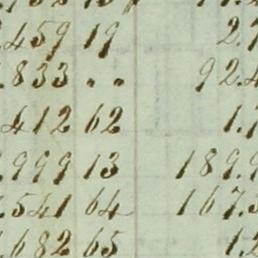 .459 19 2.7
.833 .. 92.4
.412 62 1.1
.999 13 189.9
.541 64 167.5
.682 65 1.2